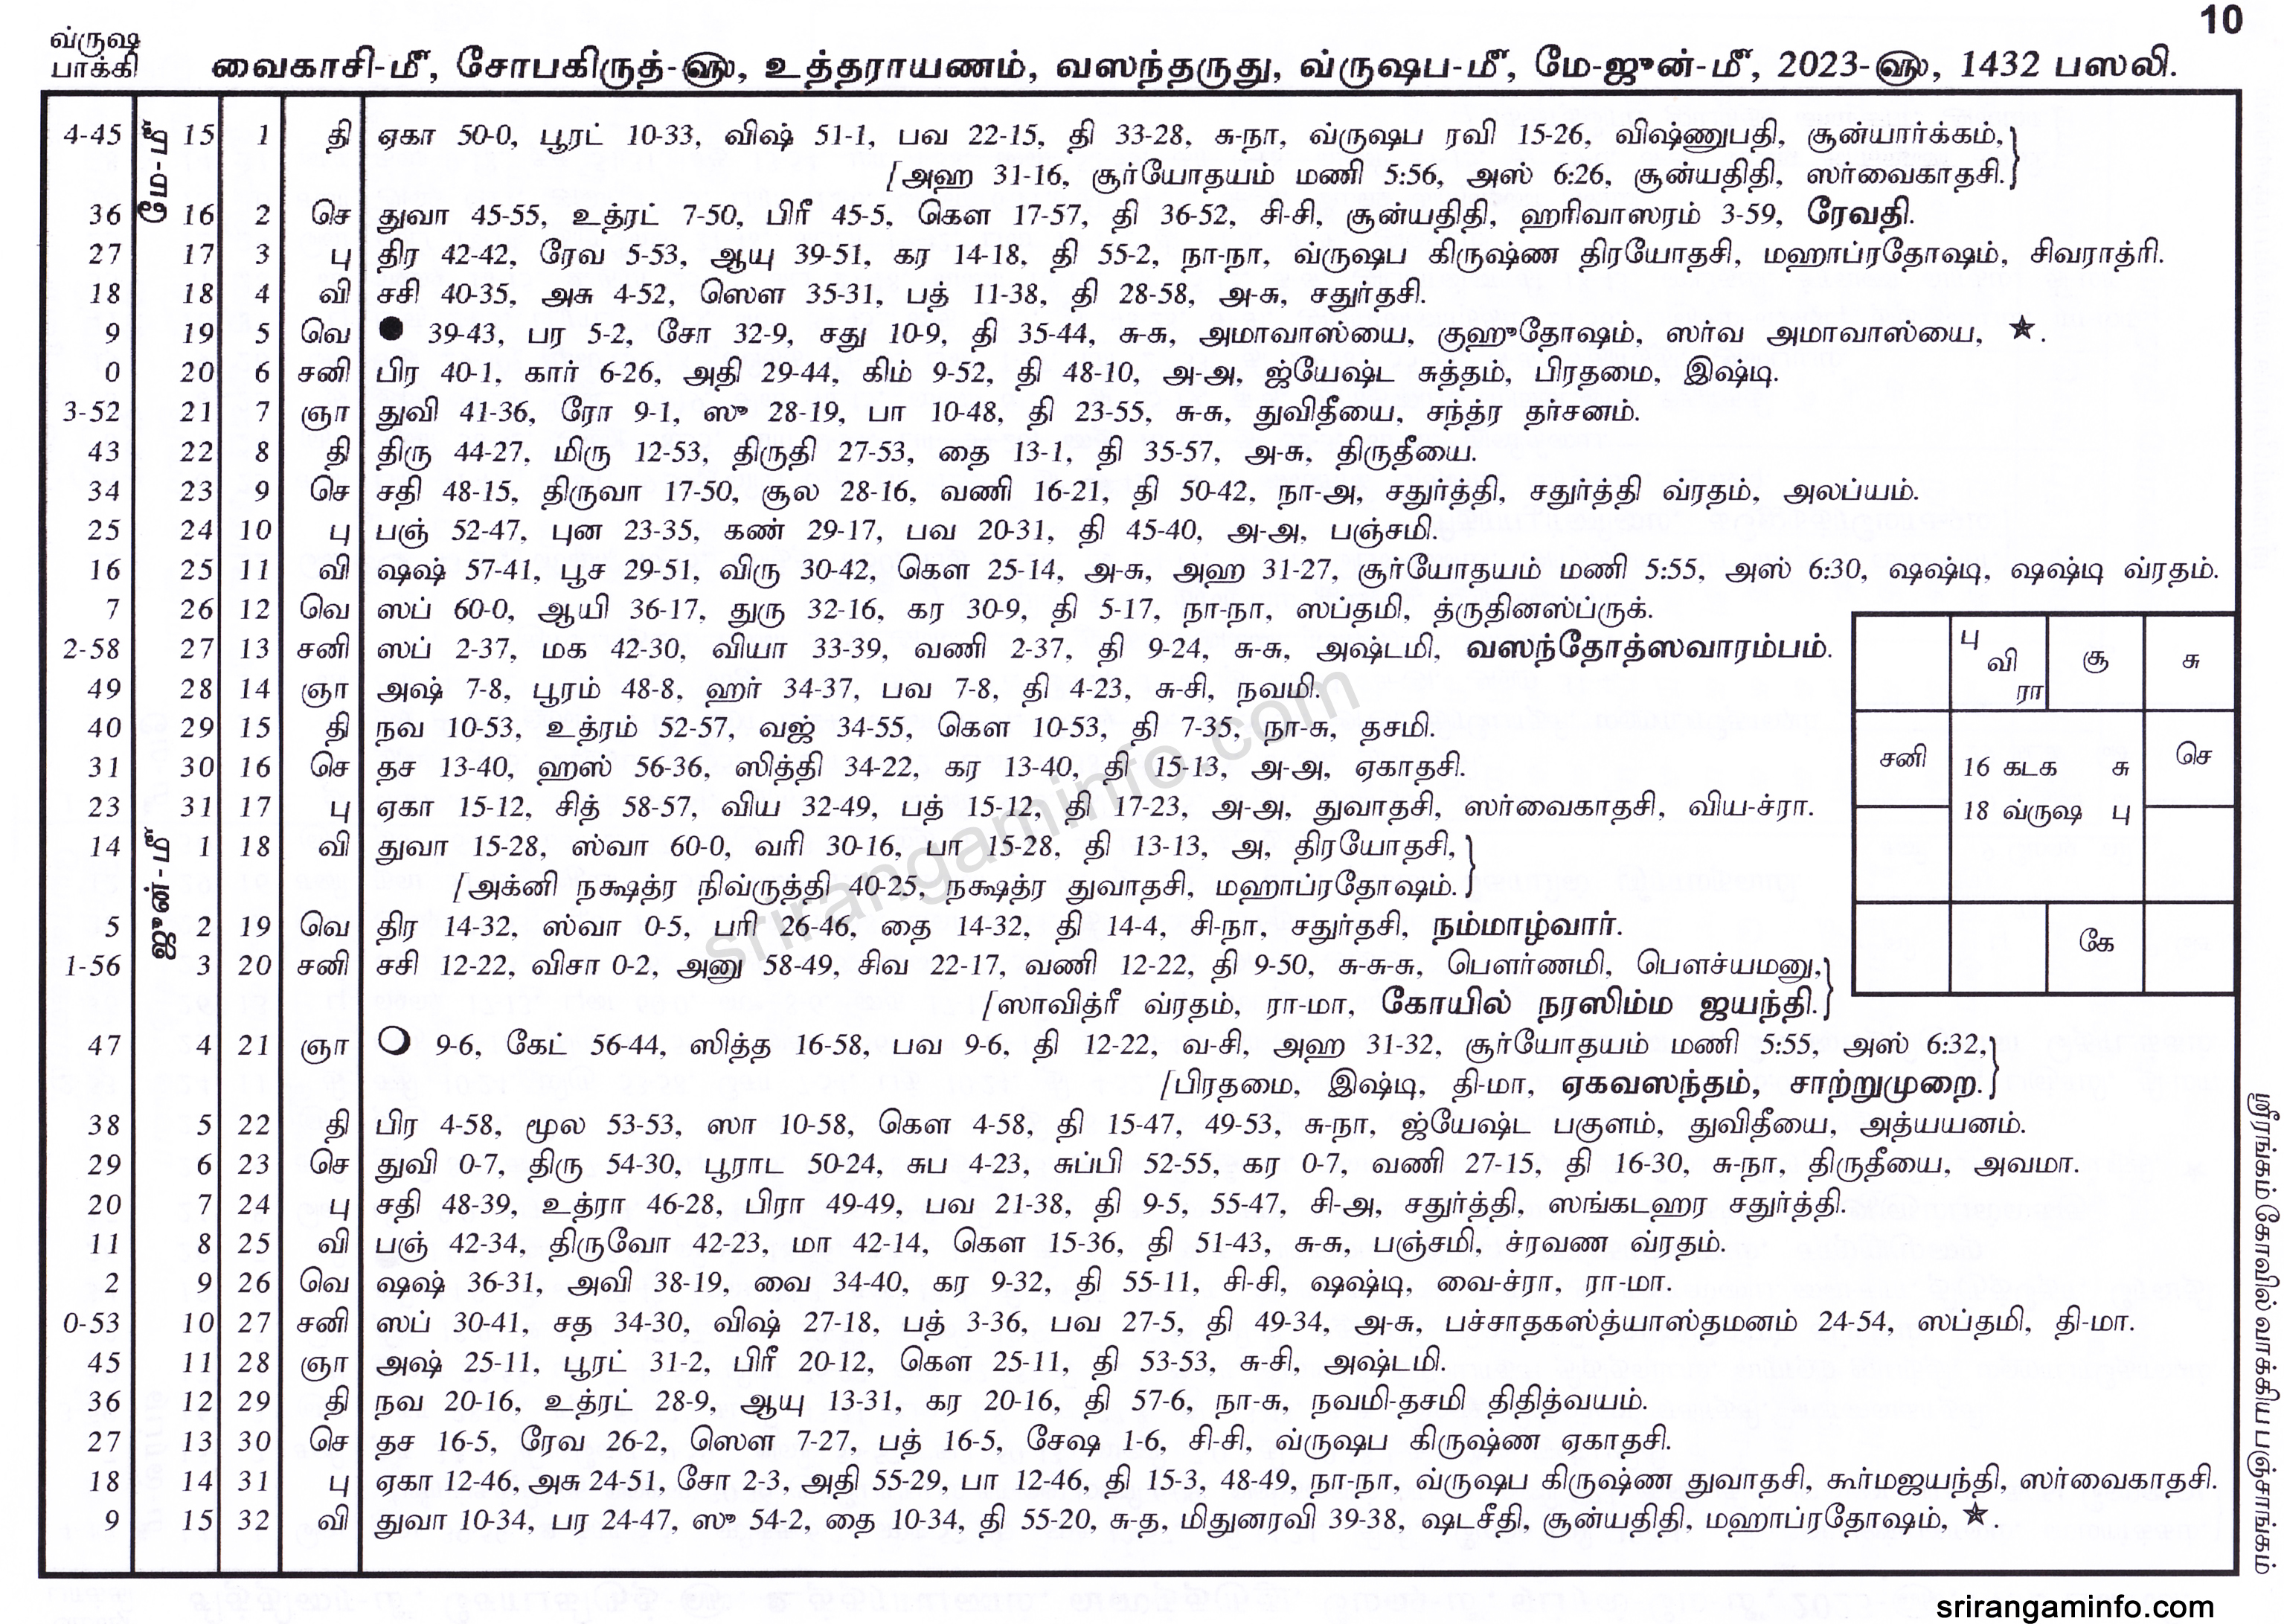 10
வ்ருஷ
பாக்கி
வைகாசி-மீ, சோபகிருத்-ஹு, உத்தராயணம், வஸந்தருது, வ்ருஷப-மீ, மே-ஜுன்-மீ, 2023-ஹு, 1432 பஸலி.
மே-மீ
4-45 15 1 தி ஏகா 50-0, பூரட் 10-33, விஷ் 51-1, பவ 22-15, தி 33-28, சு-நா, வ்ருஷப ரவி 15-26, விஷ்ணுபதி, சூன்யார்க்கம்,}
[அஹ 31-16, சூர்யோதயம் மணி 5:56, அஸ் 6:26, சூன்யதிதி, ஸர்வைகாதசி.}
36 16 2 செ துவா 45-55, உத்ரட் 7-50, பிரீ 45-5, கௌ 17-57, தி 36-52, சி-சி, சூன்யதிதி, ஹரிவாஸரம் 3-59, ரேவதி.
27 17 3 பு திர 42-42, ரேவ 5-53, ஆயு 39-51, கர 14-18, தி 55-2, நா-நா, வ்ருஷப கிருஷ்ண திரயோதசி, மஹாப்ரதோஷம், சிவராத்ரி.
18 18 4 வி சசி 40-35, அசு 4-52, ஸௌ 35-31, பத் 11-38, தி 28-58, அ-சு, சதுர்தசி.
9 19 5 வெ ● 39-43, பர 5-2, சோ 32-9, சது 10-9, தி 35-44, சு-சு, அமாவாஸ்யை, குஹுதோஷம், ஸர்வ அமாவாஸ்யை, ★.
0 20 6 சனி பிர 40-1, கார் 6-26, அதி 29-44, கிம் 9-52, தி 48-10, அ-அ, ஜ்யேஷ்ட சுத்தம், பிரதமை, இஷ்டி.
3-52 21 7 ஞா துவி 41-36, ரோ 9-1, ஸு 28-19, பா 10-48, தி 23-55, சு-சு, துவிதீயை, சந்த்ர தர்சனம்.
43 22 8 தி திரு 44-27, மிரு 12-53, திருதி 27-53, தை 13-1, தி 35-57, அ-சு, திருதீயை.
34 23 9 செ சதி 48-15, திருவா 17-50, சூல 28-16, வணி 16-21, தி 50-42, நா-அ, சதுர்த்தி, சதுர்த்தி வ்ரதம், அலப்யம்.
25 24 10 பு பஞ் 52-47, புன 23-35, கண் 29-17, பவ 20-31, தி 45-40, அ-அ, பஞ்சமி.
16 25 11 வி ஷஷ் 57-41, பூச 29-51, விரு 30-42, கௌ 25-14, அ-சு, அஹ 31-27, சூர்யோதயம் மணி 5:55, அஸ் 6:30, ஷஷ்டி, ஷஷ்டி வ்ரதம்.
7 26 12 வெ ஸப் 60-0, ஆயி 36-17, துரு 32-16, கர 30-9, தி 5-17, நா-நா, ஸப்தமி, த்ருதினஸ்ப்ருக்.
2-58 27 13 சனி ஸப் 2-37, மக 42-30, வியா 33-39, வணி 2-37, தி 9-24, சு-சு, அஷ்டமி, வஸந்தோத்ஸவாரம்பம்.
49 28 14 ஞா அஷ் 7-8, பூரம் 48-8, ஹர் 34-37, பவ 7-8, தி 4-23, சு-சி, நவமி.
40 29 15 தி நவ 10-53, உத்ரம் 52-57, வஜ் 34-55, கௌ 10-53, தி 7-35, நா-சு, தசமி.
31 30 16 செ தச 13-40, ஹஸ் 56-36, ஸித்தி 34-22, கர 13-40, தி 15-13, அ-அ, ஏகாதசி.
23 31 17 பு ஏகா 15-12, சித் 58-57, விய 32-49, பத் 15-12, தி 17-23, அ-அ, துவாதசி, ஸர்வைகாதசி, விய-ச்ரா.
ஜுன்-மீ
14 1 18 வி துவா 15-28, ஸ்வா 60-0, வரி 30-16, பா 15-28, தி 13-13, அ, திரயோதசி,}
[அக்னி நக்ஷத்ர நிவ்ருத்தி 40-25, நக்ஷத்ர துவாதசி, மஹாப்ரதோஷம்.}
5 2 19 வெ திர 14-32, ஸ்வா 0-5, பரி 26-46, தை 14-32, தி 14-4, சி-நா, சதுர்தசி, நம்மாழ்வார்.
1-56 3 20 சனி சசி 12-22, விசா 0-2, அனு 58-49, சிவ 22-17, வணி 12-22, தி 9-50, சு-சு-சு, பௌர்ணமி, பௌச்யமனு,}
[ஸாவித்ரீ வ்ரதம், ரா-மா, கோயில் நரஸிம்ம ஜயந்தி.}
47 4 21 ஞா ○ 9-6, கேட் 56-44, ஸித்த 16-58, பவ 9-6, தி 12-22, வ-சி, அஹ 31-32, சூர்யோதயம் மணி 5:55, அஸ் 6:32,}
[பிரதமை, இஷ்டி, தி-மா, ஏகவஸந்தம், சாற்றுமுறை.}
38 5 22 தி பிர 4-58, மூல 53-53, ஸா 10-58, கௌ 4-58, தி 15-47, 49-53, சு-நா, ஜ்யேஷ்ட பகுளம், துவிதீயை, அத்யயனம்.
29 6 23 செ துவி 0-7, திரு 54-30, பூராட 50-24, சுப 4-23, சுப்பி 52-55, கர 0-7, வணி 27-15, தி 16-30, சு-நா, திருதீயை, அவமா.
20 7 24 பு சதி 48-39, உத்ரா 46-28, பிரா 49-49, பவ 21-38, தி 9-5, 55-47, சி-அ, சதுர்த்தி, ஸங்கடஹர சதுர்த்தி.
11 8 25 வி பஞ் 42-34, திருவோ 42-23, மா 42-14, கௌ 15-36, தி 51-43, சு-சு, பஞ்சமி, ச்ரவண வ்ரதம்.
2 9 26 வெ ஷஷ் 36-31, அவி 38-19, வை 34-40, கர 9-32, தி 55-11, சி-சி, ஷஷ்டி, வை-ச்ரா, ரா-மா.
0-53 10 27 சனி ஸப் 30-41, சத 34-30, விஷ் 27-18, பத் 3-36, பவ 27-5, தி 49-34, அ-சு, பச்சாதகஸ்த்யாஸ்தமனம் 24-54, ஸப்தமி, தி-மா.
45 11 28 ஞா அஷ் 25-11, பூரட் 31-2, பிரீ 20-12, கௌ 25-11, தி 53-53, சு-சி, அஷ்டமி.
36 12 29 தி நவ 20-16, உத்ரட் 28-9, ஆயு 13-31, கர 20-16, தி 57-6, நா-சு, நவமி-தசமி திதித்வயம்.
27 13 30 செ தச 16-5, ரேவ 26-2, ஸௌ 7-27, பத் 16-5, சேஷ 1-6, சி-சி, வ்ருஷப கிருஷ்ண ஏகாதசி.
18 14 31 பு ஏகா 12-46, அசு 24-51, சோ 2-3, அதி 55-29, பா 12-46, தி 15-3, 48-49, நா-நா, வ்ருஷப கிருஷ்ண துவாதசி, கூர்மஜயந்தி, ஸர்வைகாதசி.
9 15 32 வி துவா 10-34, பர 24-47, ஸு 54-2, தை 10-34, தி 55-20, சு-த, மிதுனரவி 39-38, ஷடசீதி, சூன்யதிதி, மஹாப்ரதோஷம், ★.
பு
வி
ரா
சூ
சு
சனி
16 கடக சு
18 வ்ருஷ பு
செ
கே
ஸ்ரீரங்கம் கோவில் வாக்கிய பஞ்சாங்கம்
srirangaminfo.com
srirangaminfo.com